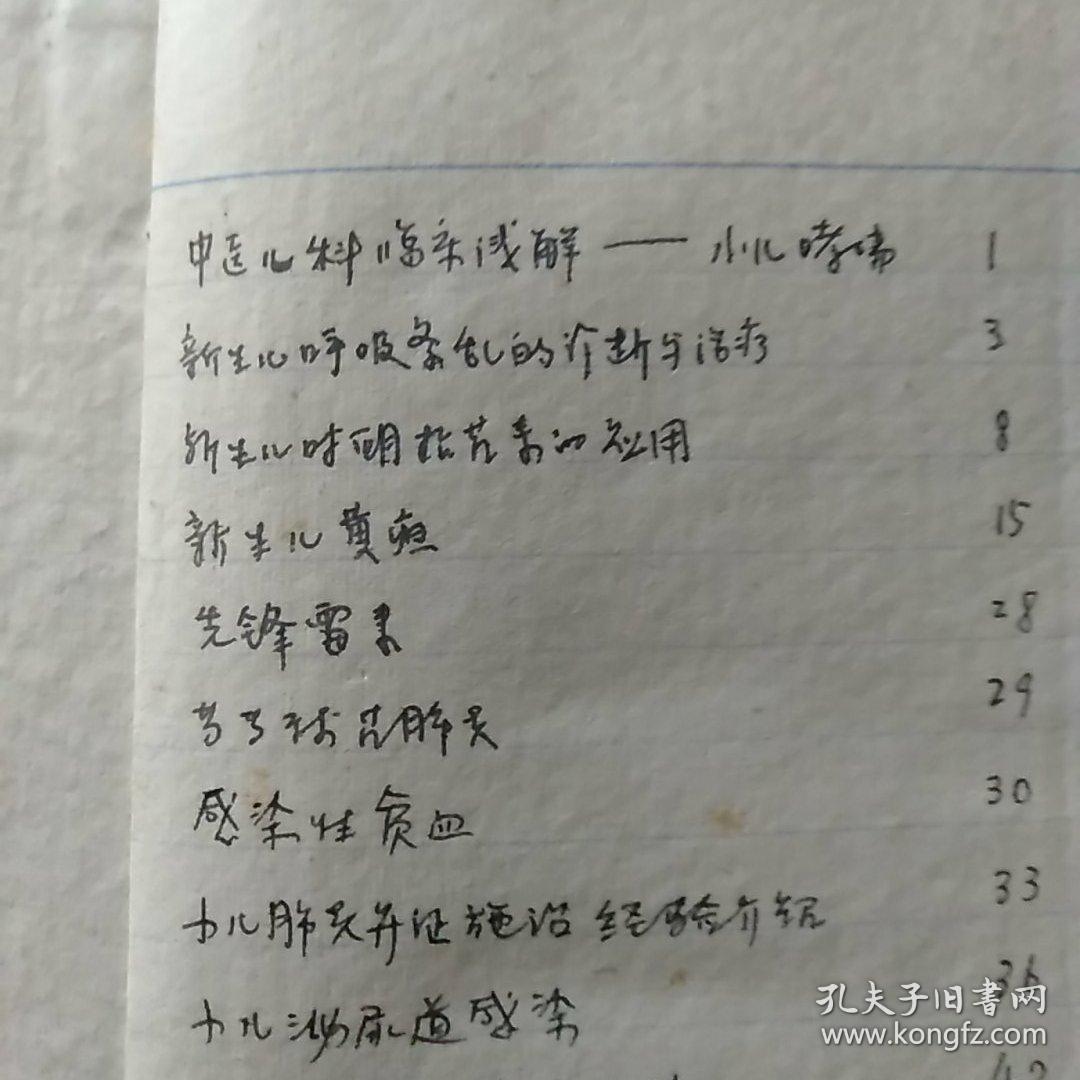 中医儿科临床浅解——小儿哮喘 1
新生儿呼吸紊乱的诊断与治疗 3
新生儿时期抗菌素的应用 8
新生儿黄疸 15
先锋霉素 28
葡萄球菌肺炎 29
感染性贫血 30
小儿肺炎并证施治经验介绍 33
小儿泌尿道感染 36
孔夫子旧书网
www.kongfz.com